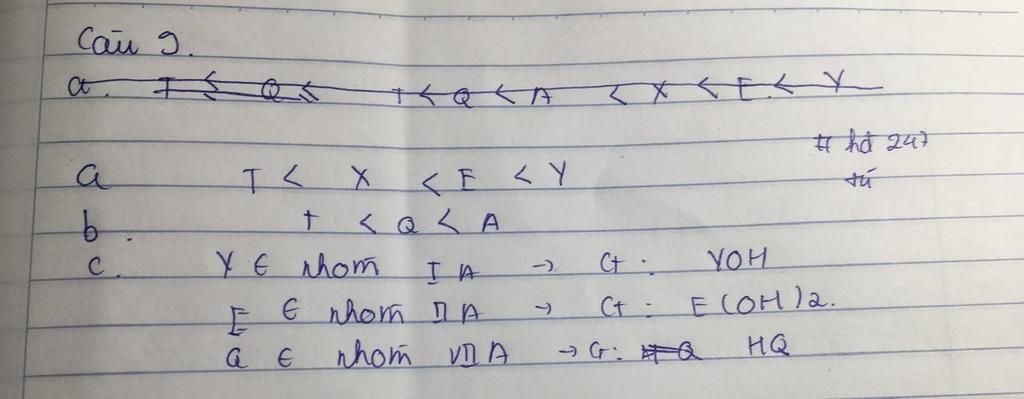 Câu 9.
a. T < Q < T < Q < A < X < E < Y
# hđ 247
a T < X < E < Y
tú
b. T < Q < A
c. Y ∈ nhóm IA → Ct: YOH
E ∈ nhóm IIA → Ct: E(OH)2.
Q ∈ nhóm VIIA → Ct: HQ HQ